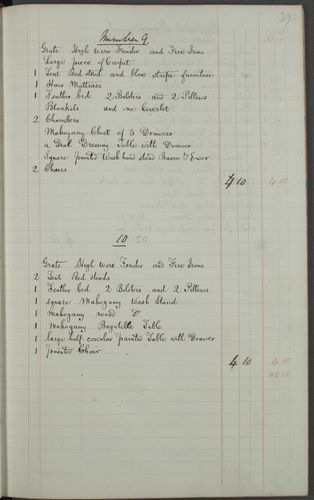 39
Number 9
Grate High Wire Fender and Fire Irons
Large piece of Carpet
1 Tent Bed stead and blue stripe furniture
1 Hair Mattrass
1 Feather bed 2 Bolsters and 2 Pillows
Blankets and one Coverlet
2 Chambers
Mahogany Chest of 5 Drawers
a Deal Dressing Table with Drawer
Square painted Wash hand stand Basin & Ewer
2 Chairs
4 10 4.10
10
Grate High Wire Fender and Fire Irons
2 Tent Bed steads
1 Feather bed 2 Bolsters and 2 Pillows
1 square Mahogany Wash Stand
1 Mahogany round Do
1 Mahogany Bagatelle Table
1 large half circular painted Table with Drawer
1 painted Chair
4 10 4.10